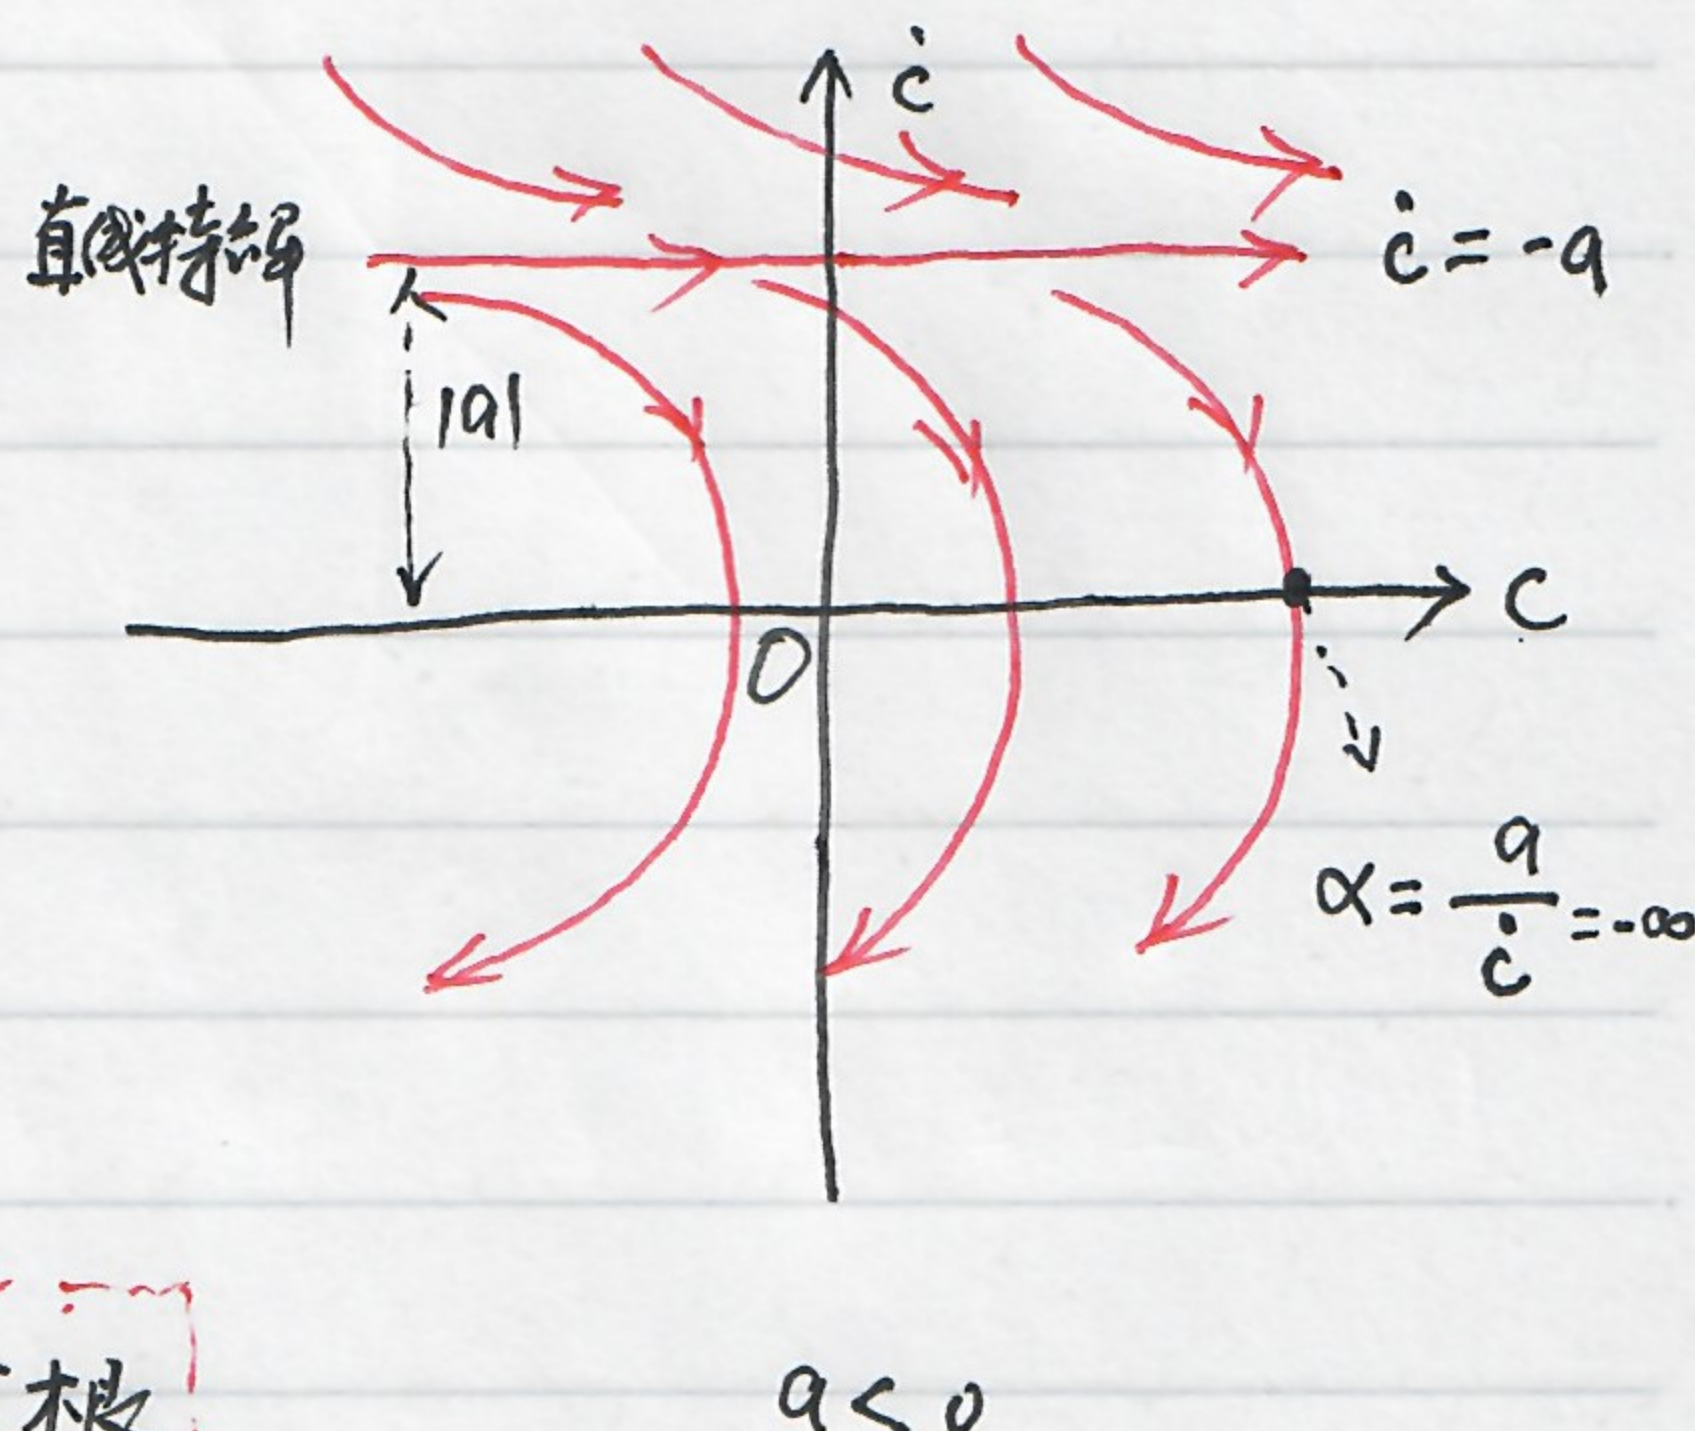 ċ
直线特解
ċ = -a
|a|
C
O
α = a/ċ = -∞
根
a < 0